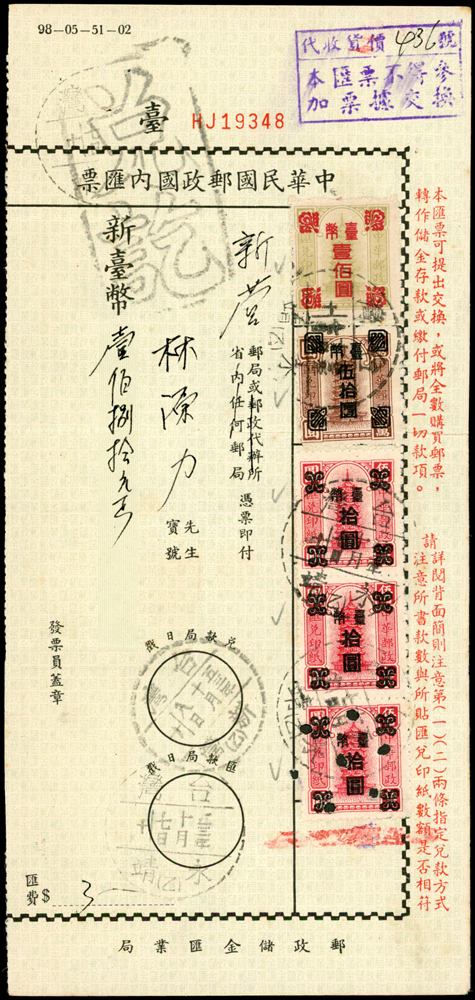 98-05-51-02
代收貨價 436 號
本匯票不得參
加票據交換
臺 HJ19348
中華民國郵政國內匯票
本匯票可提出交換，或將全數購買郵票，
轉作儲金存款或繳付郵局一切款項。
請詳閱背面簡則注意第(一)(二)兩條指定兌款方式
注意所書款數與所貼匯兌印紙數額是否相符
臺幣
壹佰圓
臺幣
伍拾圓
臺幣
拾圓
臺幣
拾圓
臺幣
拾圓
新營
郵局或郵政代辦所
省內任何郵局
憑票即付
林源力
先生
寶號
新臺幣
壹佰捌拾元
兌款局日戳
匯款局日戳
台灣
永靖
發票員蓋章
匯費 $ 3
郵政儲金匯業局